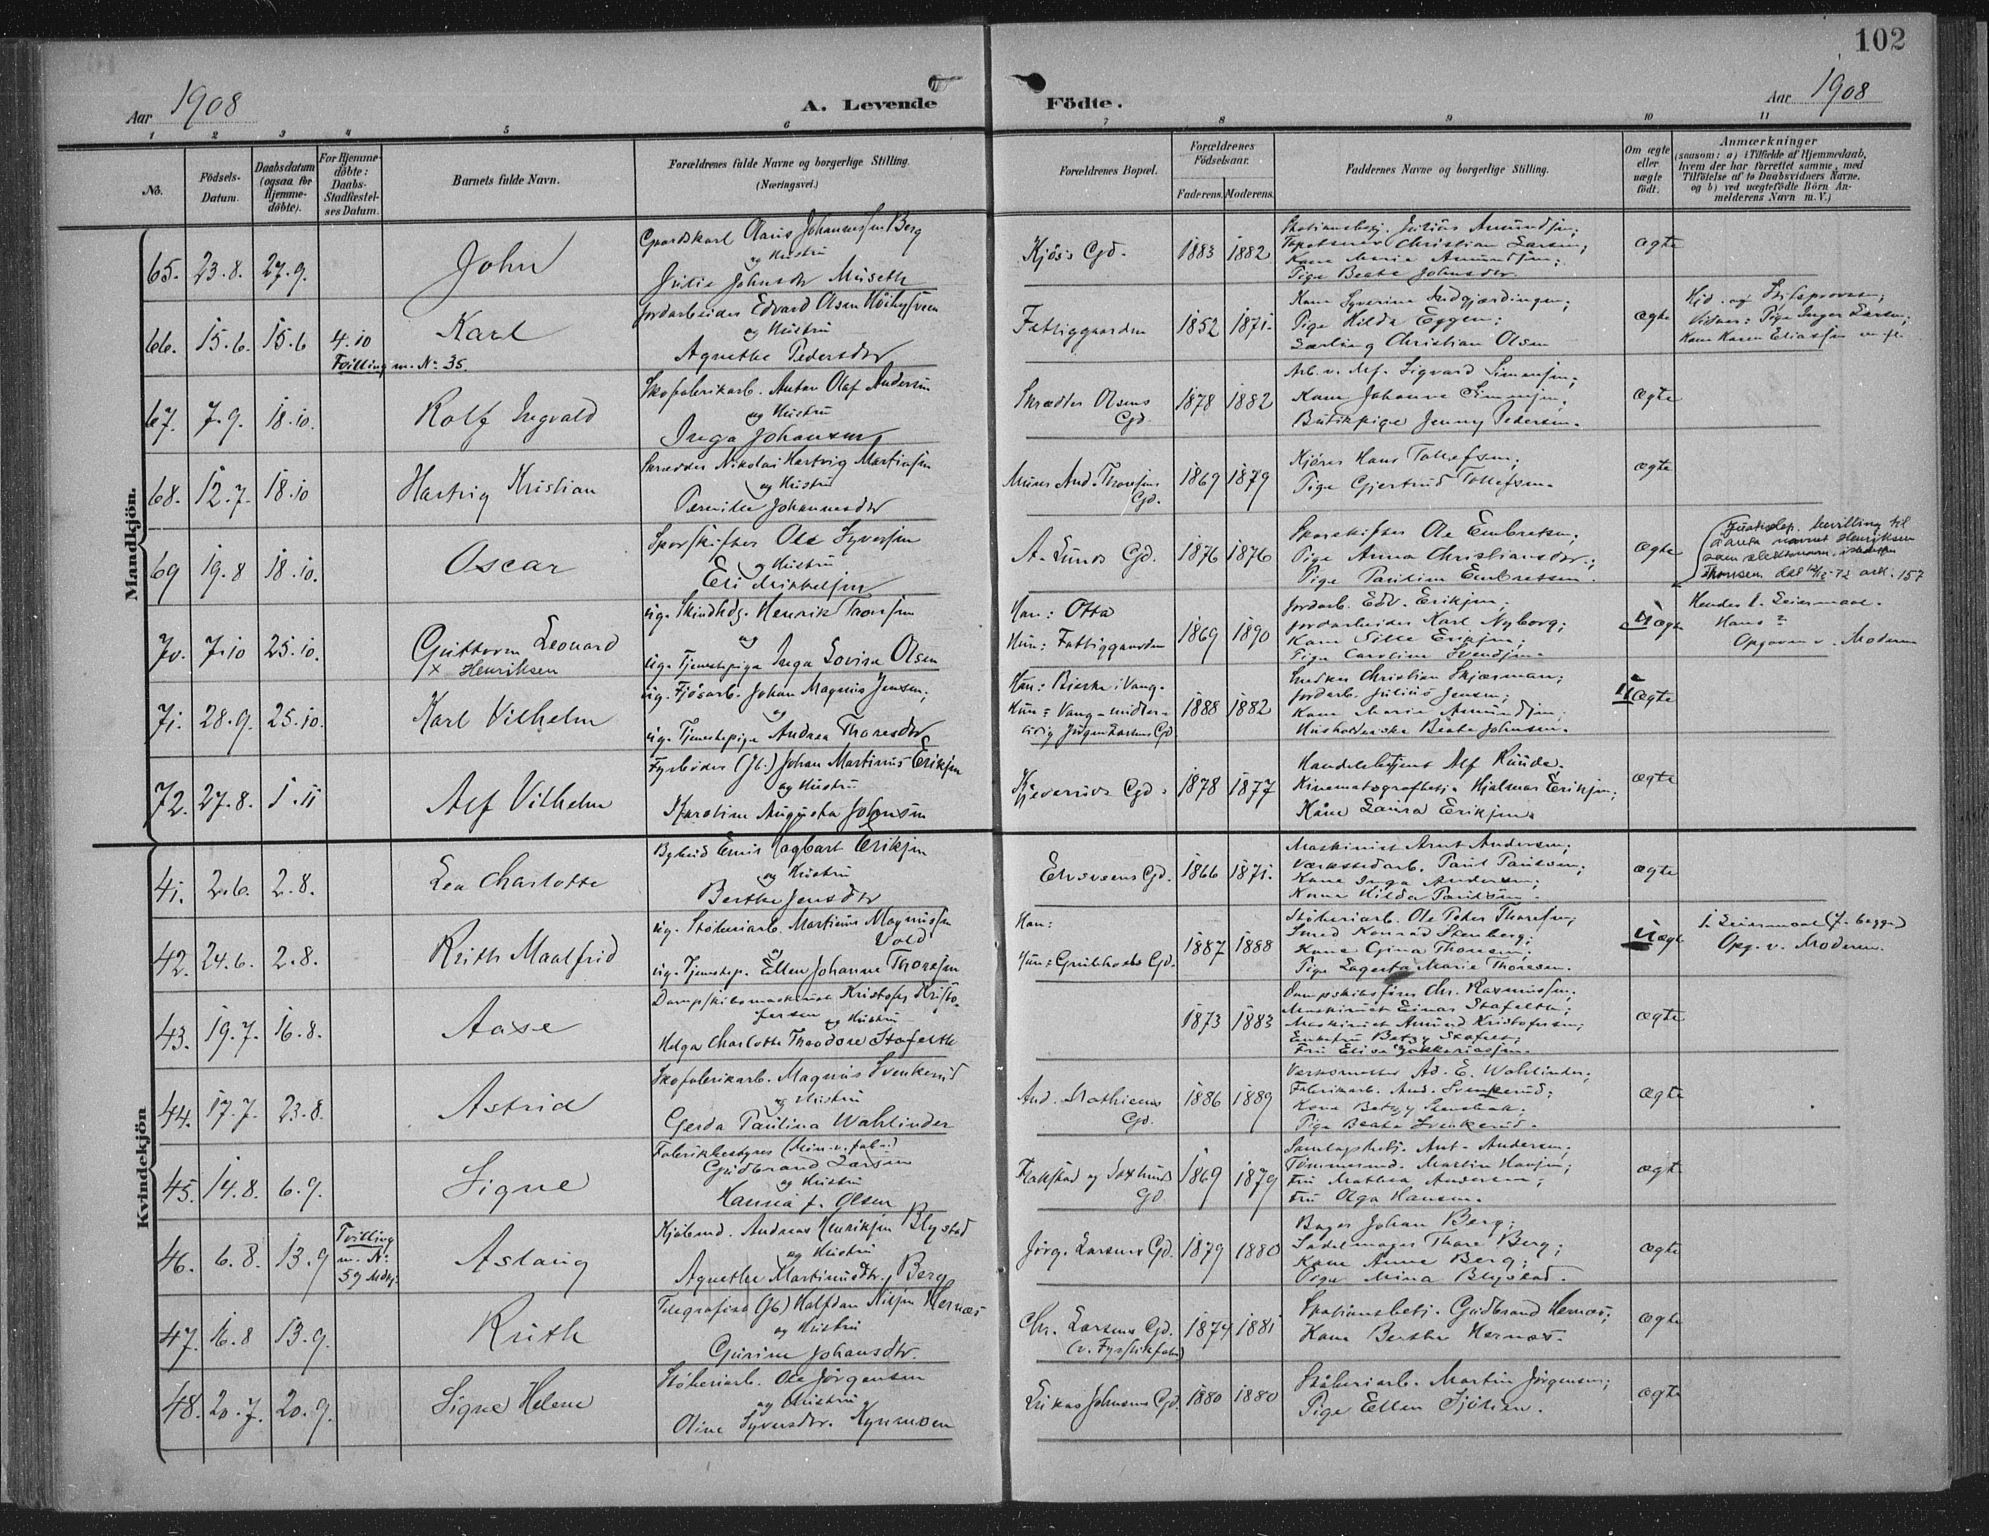 102
Aar 1908
A. Levende Födte.
Aar 1908
1 2 3 4 5 6 7 8 9 10 11
No.
Födsels-
Datum.
Daabsdatum
(ogsaa for
Hjemme-
döbte).
For Hjemme-
döbte:
Daabs-
Stadfæstel-
ses Datum.
Barnets fulde Navn.
Forældrenes fulde Navne og borgerlige Stilling.
(Næringsvei.)
Forældrenes Bopæl.
Forældrenes
Födselsaar.
Faderens. Moderens.
Faddernes Navne og borgerlige Stilling.
Om ægte
eller
uægte
födt.
Anmærkninger
(saasom: a) i Tilfælde af Hjemmedaab,
hvem der har forrettet samme, med
Tilföielse af to Daabsvidners Navne.
og b) ved uægtefödte Börn An-
melderens Navn m. V.)
Mandkjön.
65. 23.8. 27.9.
John
Gaardskarl Olaus Johannessen Berg
og Hustru
Julie Johnsdtr Museth
Kjös's Gd.
1883 1882
Stationsbetj. Julius Amundsen;
Christian Larsen;
Kone Marie Amundsen;
Pige Beate Johnsdtr.
ægte
66. 15.6. 15.6 4.10
Tvilling m. No. 35.
Karl
Jordarbeider Edvard Olsen
og Hustru
Agnethe Pedersdtr
Fattiggaarden
1852 1871.
Kone Syverine
Pige Hilda Eggen;
Særling Christian Olsen
ægte
Vidner: Pige Inger Larsen;
Kone Karen Eliassen
67. 7.9. 18.10.
Rolf Ingvald
Skofabrikarb. Anton Olaf Andersen
og Hustru
Inga Johansen
Skrædder Olsens
Gd.
1878 1882
Sigvard Simensen;
Kone Johanne Simensen;
Butikpige Jenny Pedersen.
ægte
68. 12.7. 18.10
Hartvig Kristian
Skrædder Nikolai Hartvig Martinsen
og Hustru
Pernille Johannesdtr
Murer And. Thoresens
Gd.
1869 1879
Kjörer Hans Tollefsen;
Pige Gjertrud Tollefsen.
ægte
69 19.8 18.10.
Oscar
Sporskifter Ole Syversen
og Hustru
Eli Mikkelsen
A. Lunds Gd.
1876 1876
Sporskifter Ole Embretsen;
Pige Anna Christiansdtr.;
Pige Pauline Embretsen.
ægte
bevilling til
navnet Henriksen
som slektsnavn istedetfor
Thoresen
157
70. 7.10 25.10.
Guttorm Leonard
x Henriksen
ug. Skindhdg. Henrik Thoresen
og
ug. Tjenestepige Inga Lovise Olsen
Han: Otta
Hun: Fattiggaarden
1869 1890
Jordarb. Edv. Eriksen;
Jordarbeider Karl Nyborg;
Kone Sille Eriksen;
Pige Caroline Svendsen.
uægte
Hendes 1. Leiermaal.
Hans ?
Opgaven v. Moderen
71. 28.9. 25.10.
Karl Vilhelm
ug. Fjösarb. Johan Magnus Jensen;
og
ug. Tjenestepige Andrea Thoresdtr
Han: Bjerke i Vang.
Hun: Vang - midler-
tidig Jörgen Larsens Gd
1888 1882
Snedker Christian Skjærman;
Jordarb. Julius Jensen;
Kone Marie Amundsen;
Husholderske Beate Johnsen.
uægte
72. 27.8. 1.11
Alf Vilhelm
Fyrböder (Jb.) Johan Martinus Eriksen
og Hustru
Karoline Augusta Johnsen
Gd.
1878 1877
Handelsbetjent Alf Ruude.
Kinematografbetj. Hjalmar Eriksen;
Kone Laura Eriksen.
ægte
Kvindekjön
41. 2.6. 2.8.
Lea Charlotte
Bybud Emil Dagbart Eriksen
og Hustru
Berthe Jensdtr
Gd.
1866 1871.
Maskinist Arnt Andersen;
Værkstedarb. Paul Paulsen;
Kone Inga Andersen;
Kone Hilda Paulsen.
ægte
42. 24.6. 2.8.
Ruth Maalfrid
ug. Stöberiarb. Martinus Magnussen
Vold
og
ug. Tjenestep. Ellen Johanne Thoresen
Han:
Hun: Gd.
1887 1888
Stöberiarb. Ole Peder Thoresen;
Smed Konrad Stenberg;
Kone Gina Thoresen;
Pige Lagerta Marie Thoresen.
uægte
1. Leiermaal (f. begge)
Opg. v. Moderen.
43. 19.7. 16.8.
Aase
Dampskibsmaskinist Kristofer Kristo-
fersen
og Hustru
Helga Charlotte Theodore Stafelth
1873 1883
Dampskibsförer Chr. Rasmussen;
Maskinist Einar Stafelth;
Maskinist Amund Kristofersen;
Enkefru Betzy Stafelt;
Fru Elise Zakkeriassen.
ægte
44. 17.7. 23.8.
Astrid
Skofabrikarb. Magnus Svenkerud
og Hustru
Gerda Paulina Wahlinder
And. Mathiesens
Gd.
1886 1889
Værksmester Ad. E. Wahlinder;
Fabrikarb. And. Svenkerud;
Kone Betzy
Pige Beate Svenkerud.
ægte
45. 14.8. 6.9.
Signe
Fabrikbestyrer
Gudbrand Larsen
og Hustru
Hanna f. Olsen
Gd.
1869 1879
Samlagsbetj. Ant. Andersen;
Tömmermd. Martin Hansen;
Fru Mathea Andersen;
Fru Olga Hansen.
ægte
46. 6.8. 13.9
Tvilling
m. No.
59 Mdkj.
Aslaug
Andreas Henriksen Blystad
og Hustru
Agnethe Martinusdtr. Berg
Jörg. Larsens Gd.
1879 1880
Bager Johan Berg;
Sadelmager Thore Berg;
Kone Anne Berg;
Pige Mina Blystad.
ægte
47. 16.8 13.9.
Ruth
Telegrafist (Jb) Halfdan Nilsen Hernæs
og Hustru
Gurine Johansdtr.
Chr. Larsens Gd.
(v. Fyrstikfabr)
1874 1881
Stationsbetj. Gudbrand Hernæs;
Kone Berthe Hernæs.
ægte
48. 20.7. 20.9.
Signe Helene
Stöberiarb. Ole Jörgensen
og Hustru
Oline Syversdtr. Kynmoen
Johnsens Gd.
1880 1880
Stöberiarb. Martin Jörgensen;
Pige Ellen Sjölien.
ægte